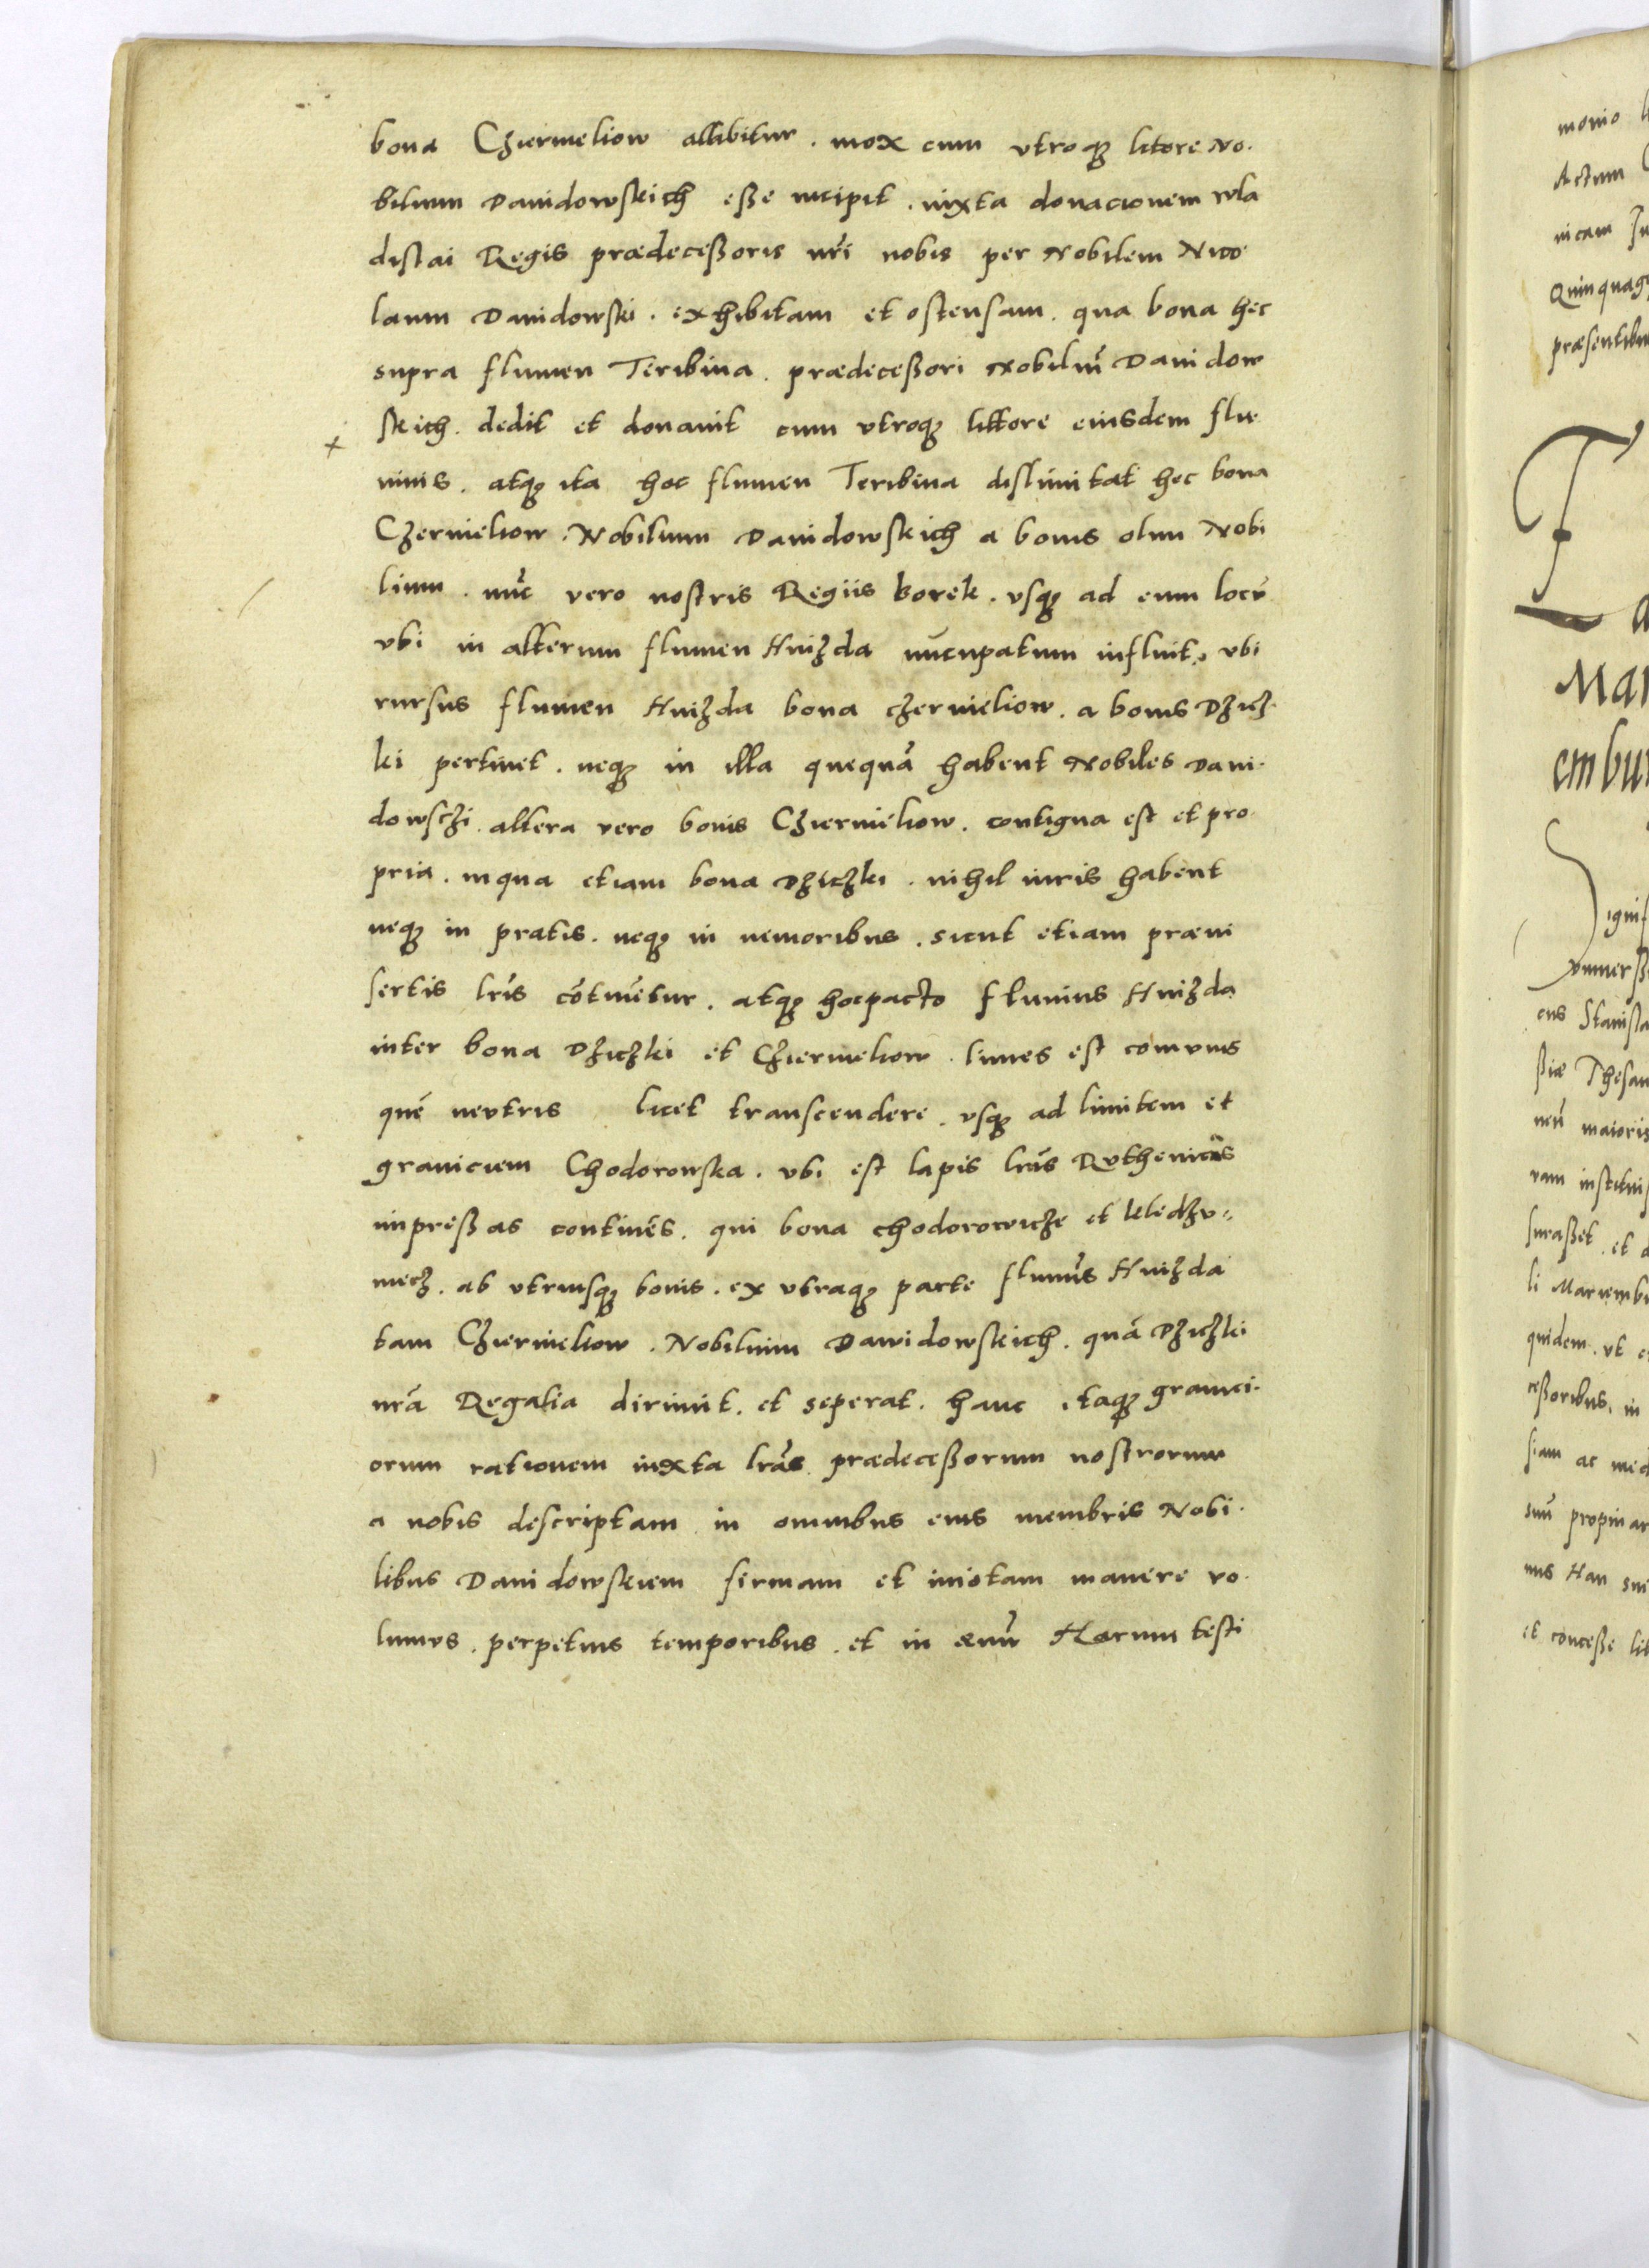 bona Czierneliow allibitur . mox cum vtroq₃ litore No.
bilium Dauidowskich eße incipit . iuxta donacionem wla
dislai Regis prædeceßoris nr̃i nobis per Nobilem Nico
laum Dauidowski . exhibitam et ostensam . qua bona hec
supra flumen Teribina . prædeceßori Nobiliũ Dauidow
skich . dedit et donauit cum vtroq₃ littore eiusdem flu
minis . atq₃ ita hoc flumen Teribina dislimitat hec bona
Czernieliow . Nobilium Dauidowskich a bonis olim Nobi
lium . nũc vero nostris Regiis borek . vsq₃ ad eum locũ
vbi in alterum flumen Hnizda nũcupatum influit . vbi
rursus flumen Hnizda bona czernieliow . a bonis Dzicz
ki pertinet . neq₃ in illa quequã habent Nobiles Daui.
dowsczi . altera vero bonis Czierneliow . contigua est et pro.
pria . in qua etiam bona Dziczki . nihil iuris habent
neq₃ in pratis . neq₃ in nemoribus . sicut etiam præin
sertis lr̃is cõtinẽtur . atq₃ hocpacto fluuius Hnizda
inter bona Dziczki et Czierneliow . limes est comvnis
quẽ nevtris licet transcendere . vsq₃ ad limitem et
graniciem Chodorowska . vbi est lapis lr̃as Ruthenicas
impreßas continẽs . qui bona chodorowicze et
mecz . ab vtriusq₃ bonis . ex vtraq₃ parte fluminis Hnizda
tam Czierneliow . Nobilium Dawidowskich . quã Dziczki
nr̃a Regalia dirimit . et seperat . hanc itaq₃ granici.
orum rationem iuxta lr̃as prædeceßorum nostrorum
a nobis descriptam in omnibus eius membris Nobi.
libus Dauidowskiem firmam et imotam manere vo.
lumvs . perpetuis temporibus . et in æuũ Harum testi
monio
Actum
nicam
Quinquag
præsentibu
Mar
embur
ignif
vniuerß
cus Stanisla
ßiæ Thesau
neũ maioris
ram instituis
suraßet . et
li Mariembu
quidem . vt
ceßoribus . in
siam ac med
suũ propinar
nus Han sui
et conceße